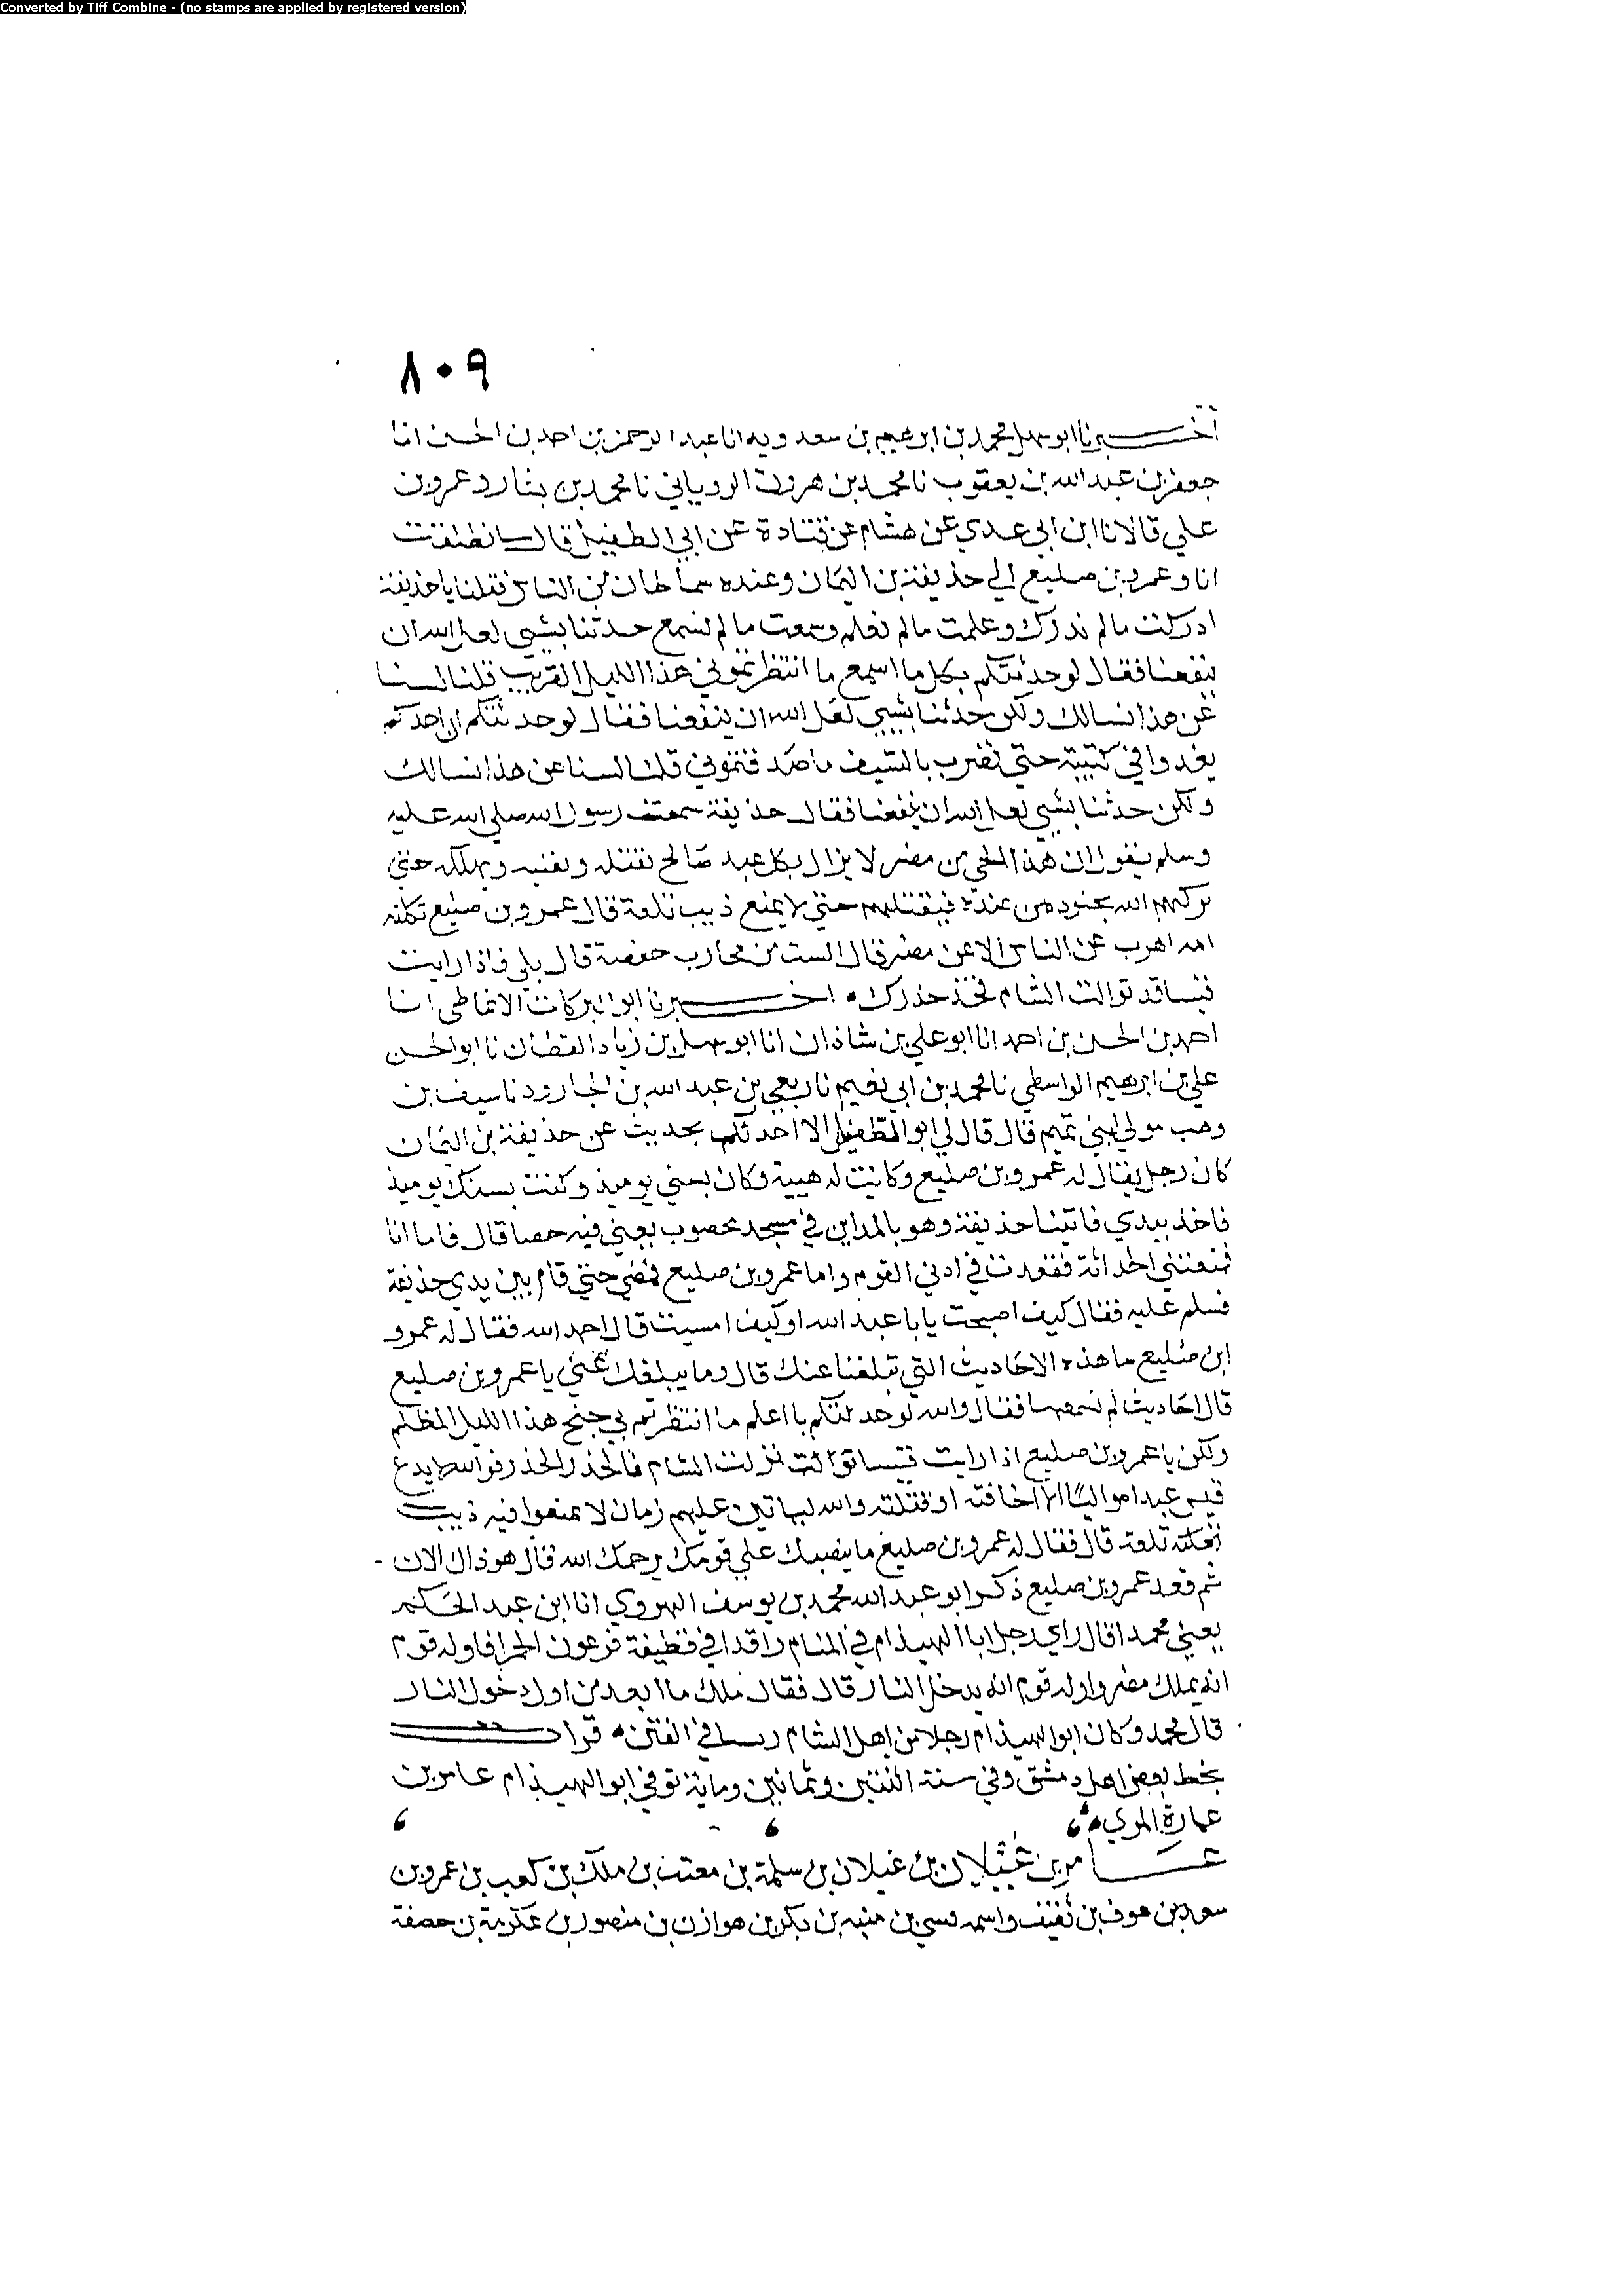 Converted by Tiff Combine - (no stamps are applied by registered version)
٨٠٩
اخبرنا ابو سهل محمد بن ابرهيم بن سعدويه انا عبد الرحمن بن احمد بن الحسن انا
جعفر بن عبد الله بن يعقوب نا محمد بن هرون الروياني نا محمد بن بشار وعمرو بن
علي قالا نا ابن ابي عدي عن هشام عن قتادة عن ابي الطفيل قال انطلقت
انا وعمرو بن صليع الي حذيفة بن اليمان وعنده سماطان من الناس فقلنا يا حذيفة
ادركت ما لم ندرك وعلمت ما لم نعلم وسمعت ما لم نسمع حدثنا بشيي لعل الله ان
ينفعنا فقال لو حدثتكم بكل ما اسمع ما انتظرتموني هذا الليل القريب قلنا لسنا
عن هذا نسالك ولكن حدثنا بشيي لعل الله ان ينفعنا فقال لو حدثتكم ان احدكم
يغدوا في كتيبة حتي تضرب بالسيف ما صد قتموني قلنا لسنا عن هذا نسالك
ولكن حدثنا بشيي لعل الله ان ينفعنا فقال حذيفة سمعت رسول الله صلي الله عليه
وسلم يقول ان هذا الحي من مضر لا يزال بكل عبد صالح تقتله وتفنيه ويهلكه حتي
يركهم الله بجنود من عنده فيقتلهم حتي لا يمنع ذيب تلعة قال عمرو بن صليع ثكلته
امه اهرب عن الناس الا عن مضر قال الست من محارب حفصة قال بلي فاذا رايت
قيسا قد توالت الشام فخذ حذرك اخبرنا ابو البركات الانماطي انا
احمد بن الحسن بن احمد انا ابو علي بن شاذان انا ابو سهل بن زياد القطان نا ابو الحسن
علي بن ابرهيم الواسطي نا محمد بن ابي نعيم نا ربعي بن عبد الله بن الجارود نا سيف بن
وهب مولي لبني تميم قال قال لي ابو الطفيل الا احدثكم بحديث عن حذيفة بن اليمان
كان رجل يقال له عمرو بن صليع وكانت له هيبة وكان بسني يوميذ وكنت بسنك يوميذ
فاخذ بيدي فاتينا حذيفة وهو بالمداين في مسجد محصوب يعني فيه حصا قال فاما انا
فمنعتني الحداثة فقعدت في ادني القوم واما عمرو بن صليع فمضي حتي قام بين يدي حذيفة
فسلم عليه فقال كيف اصبحت يا با عبد الله او كيف امسيت قال احمد الله فقال له عمرو
ابن صليع ما هذه الاحاديث التي تبلغنا عنك قال وما يبلغك عني يا عمرو بن صليع
قال احاديث لم نسمعها فقال والله لو حدثتكم با اعلم ما انتظرتم بي جنح هذا الليل المظلم
ولكن يا عمرو بن صليع اذا رايت قيسا توالت نزلت الشام فالحذر الحذر فوالله لا يدع
قيس عبدا مواليا الا اخافته او قتلته والله لياتين عليهم زمان لا يمنعوا فيه ذيب
تلعة قال فقال له عمرو بن صليع ما ينصبك علي قومك يرحمك الله قال هو ذاك الان
ثم قعد عمرو بن صليع ذكر ابو عبد الله محمد بن يوسف الهروي انا ابن عبد الحكم
يعني محمدا قال راي رجل ابا الهيذام في المنام راقدا في قطيفة فرعون الحمرا فاوله قوم
انه يملك مضر واوله قوم انه يدخل النار قال فقال ملك ما ابعد من اول دخول النار
قال محمد وكان ابو الهيذام رجلا من اهل الشام في الفتن قرات
بخط بعض اهل دمشق وفي سنة اثنتين وثمانين وماية توفي ابو الهيذام عامر بن
عمارة المري
عامر بن غيلان بن سلمة بن معتب بن ملك بن كعب بن عمرو بن
سعد بن عوف بن ثقيف واسمه قسي بن منبه بن بكر بن هوازن بن منصور بن عكرمة بن حصفة